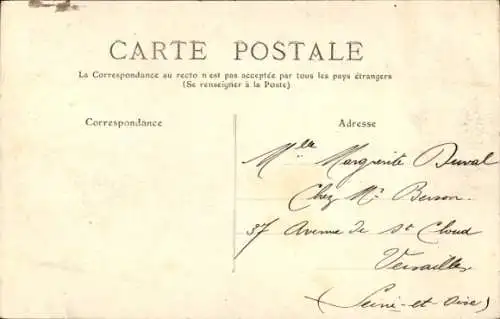 CARTE POSTALE
La Correspondance au recto n'est pas acceptée par tous les pays étrangers
(Se renseigner à la Poste)
Correspondance
Adresse
Mlle Marguerite Duval
Chez Mr Berson.
37 Avenue de St Cloud
Versailles
(Seine-et-Oise)